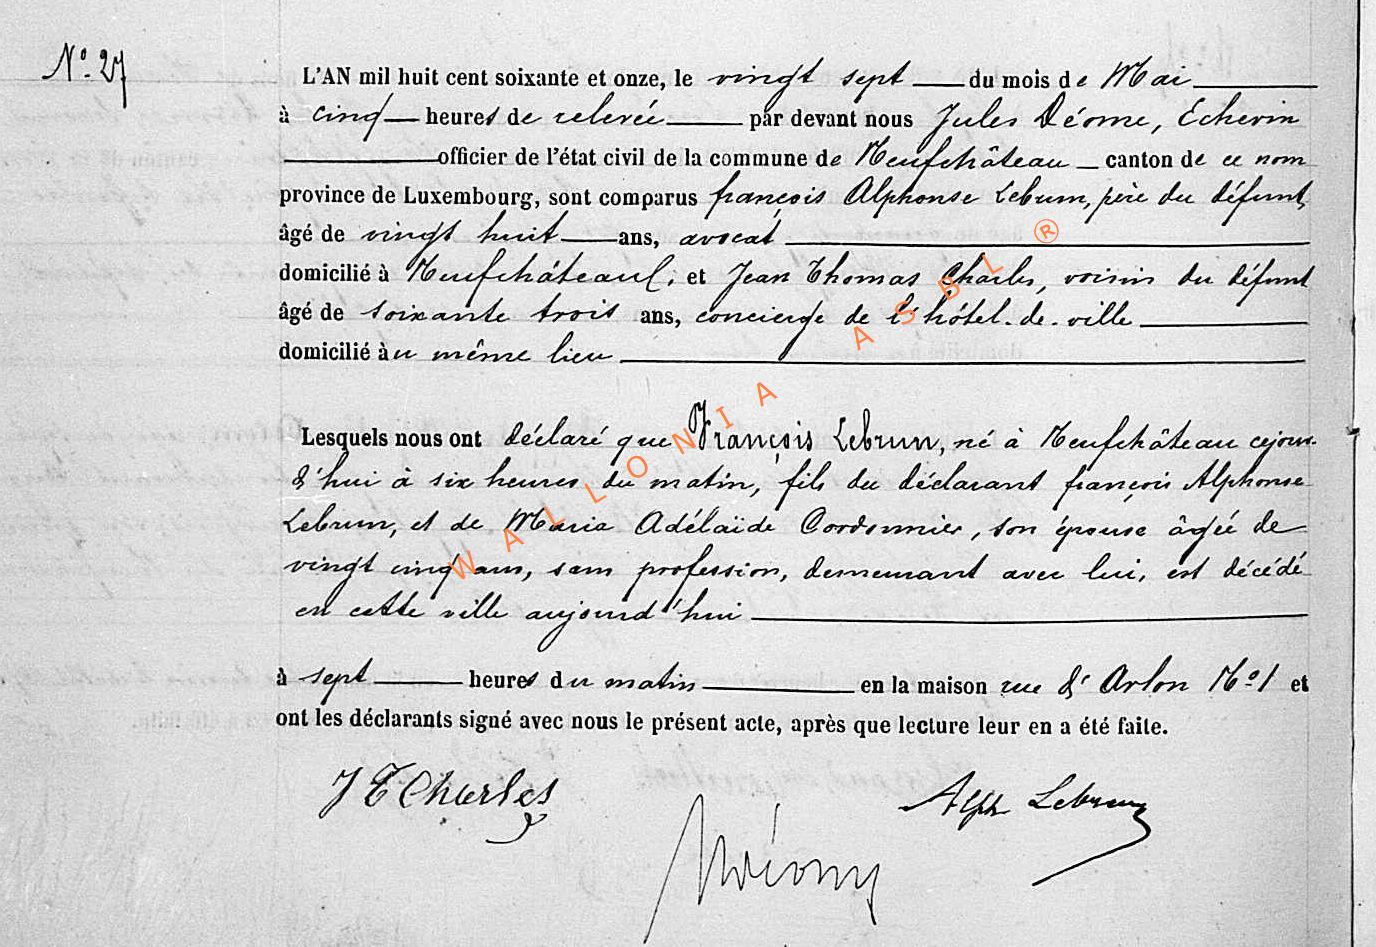 N° 27
L'AN mil huit cent soixante et onze, le vingt sept du mois de Mai
à cinq heures de relevée par devant nous Jules Déome, Echevin
officier de l'état civil de la commune de Neufchâteau canton de ce nom
province de Luxembourg, sont comparus françois Alphonse Lebrun, père du défunt,
âgé de vingt huit ans, avocat
domicilié à Neufchâteau, et Jean Thomas Charles, voisin du défunt
âgé de soixante trois ans, concierge de l'hôtel-de-ville
domicilié au même lieu
Lesquels nous ont déclaré que François Lebrun, né à Neufchâteau cejour-
d'hui à six heures du matin, fils du déclarant françois Alphonse
Lebrun, et de Maria Adélaïde Cordonnier, son épouse âgée de
vingt cinq ans, sans profession, demeurant avec lui, est décédé
en cette ville aujourd'hui
à sept heures du matin en la maison rue d'Arlon N° 1 et
ont les déclarants signé avec nous le présent acte, après que lecture leur en a été faite.
J T Charles
Alph Lebrun
WALLONIA ASBL ®